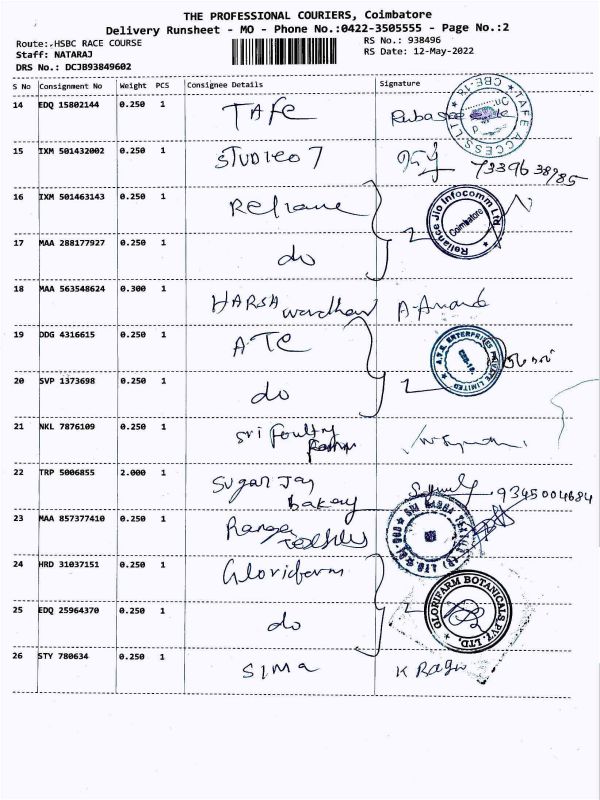 THE PROFESSIONAL COURIERS, Coimbatore
Delivery Runsheet - MO - Phone No.:0422-3505555 - Page No.:2
Route: HSBC RACE COURSE
RS No.: 938496
Staff: NATARAJ
RS Date: 12-May-2022
DRS No.: DCJB93849602
S No Consignment No Weight PCS Consignee Details Signature
14 EDQ 15802144 0.250 1 TAFE
TAFE ACCESS LTD CBE-18
15 IXM 501432002 0.250 1 STUDIEO 7 7339638985
16 IXM 501463143 0.250 1 Reliance 2
Reliance Jio Infocomm Ltd Coimbatore
17 MAA 288177927 0.250 1 do
18 MAA 563548624 0.300 1 HARSHA wardhan A. Anand
19 DDG 4316615 0.250 1 ATE
A.T.E. ENTERPRISES PRIVATE LIMITED
20 SVP 1373698 0.250 1 do 2
21 NKL 7876109 0.250 1 Sri Poultry
Farm
22 TRP 5006855 2.000 1 Sugar Jay 9345004684
bakery
23 MAA 857377410 0.250 1 Ranga
Textiles
24 HRD 31037151 0.250 1 Glorifarm
GLORIFARM BOTANICALS PVT. LTD.
25 EDQ 25964370 0.250 1 do
26 STY 780634 0.250 1 SIMA K Ragu